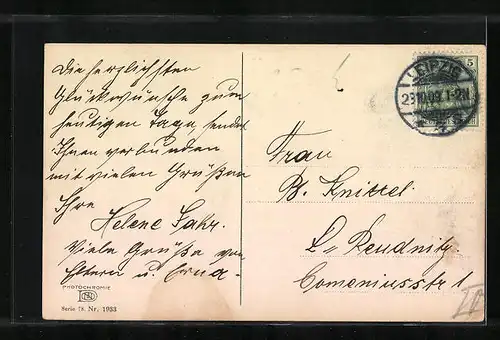 Die herzlichsten
Glückwünsche zum
heutigen Tage, sendet
Ihnen verbunden
mit vielen Grüßen
Ihre
Helene Fahr.
Viele Grüße von
Eltern u. Erna.
PHOTOCHROMIE
Serie 78. Nr. 1933
5
LEIPZIG
1-2N
Frau
B. Knittel.
L.-Reudnitz.
Comeniusstr 1
III